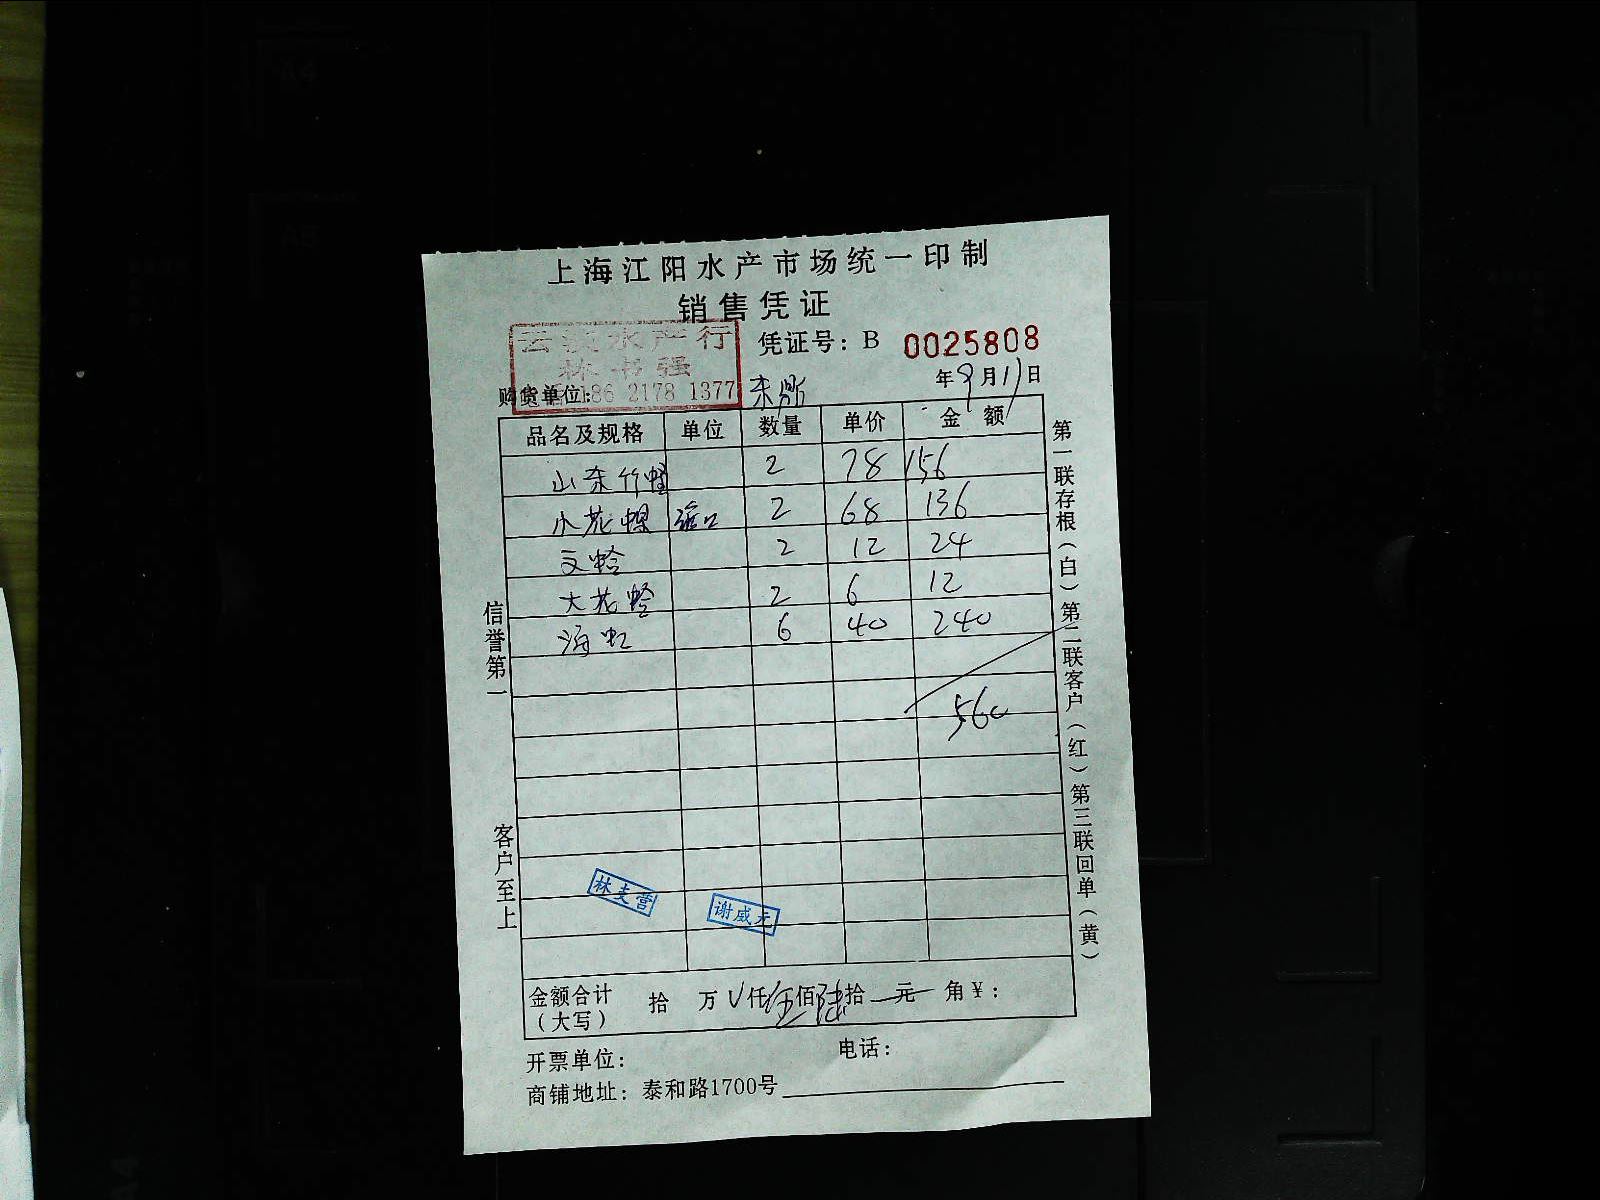 上海江阳水产市场统一印制
销售凭证
云 水产行
林书强
186 2178 1377
凭证号：B 0025808
购货单位： 东鼎
年9月11日
品名及规格 单位 数量 单价 金额
山东竹蛏 2 78 156
小花螺 2 68 136
文蛤 2 12 24
大花蛤 2 6 12
海虹 6 40 240
560
信誉第一
客户至上
第一联存根（白）第二联客户（红）第三联回单（黄）
林支营
谢威元
金额合计（大写） 拾 万 仟伍佰陆拾 元 角￥：
开票单位：
电话：
商铺地址：泰和路1700号